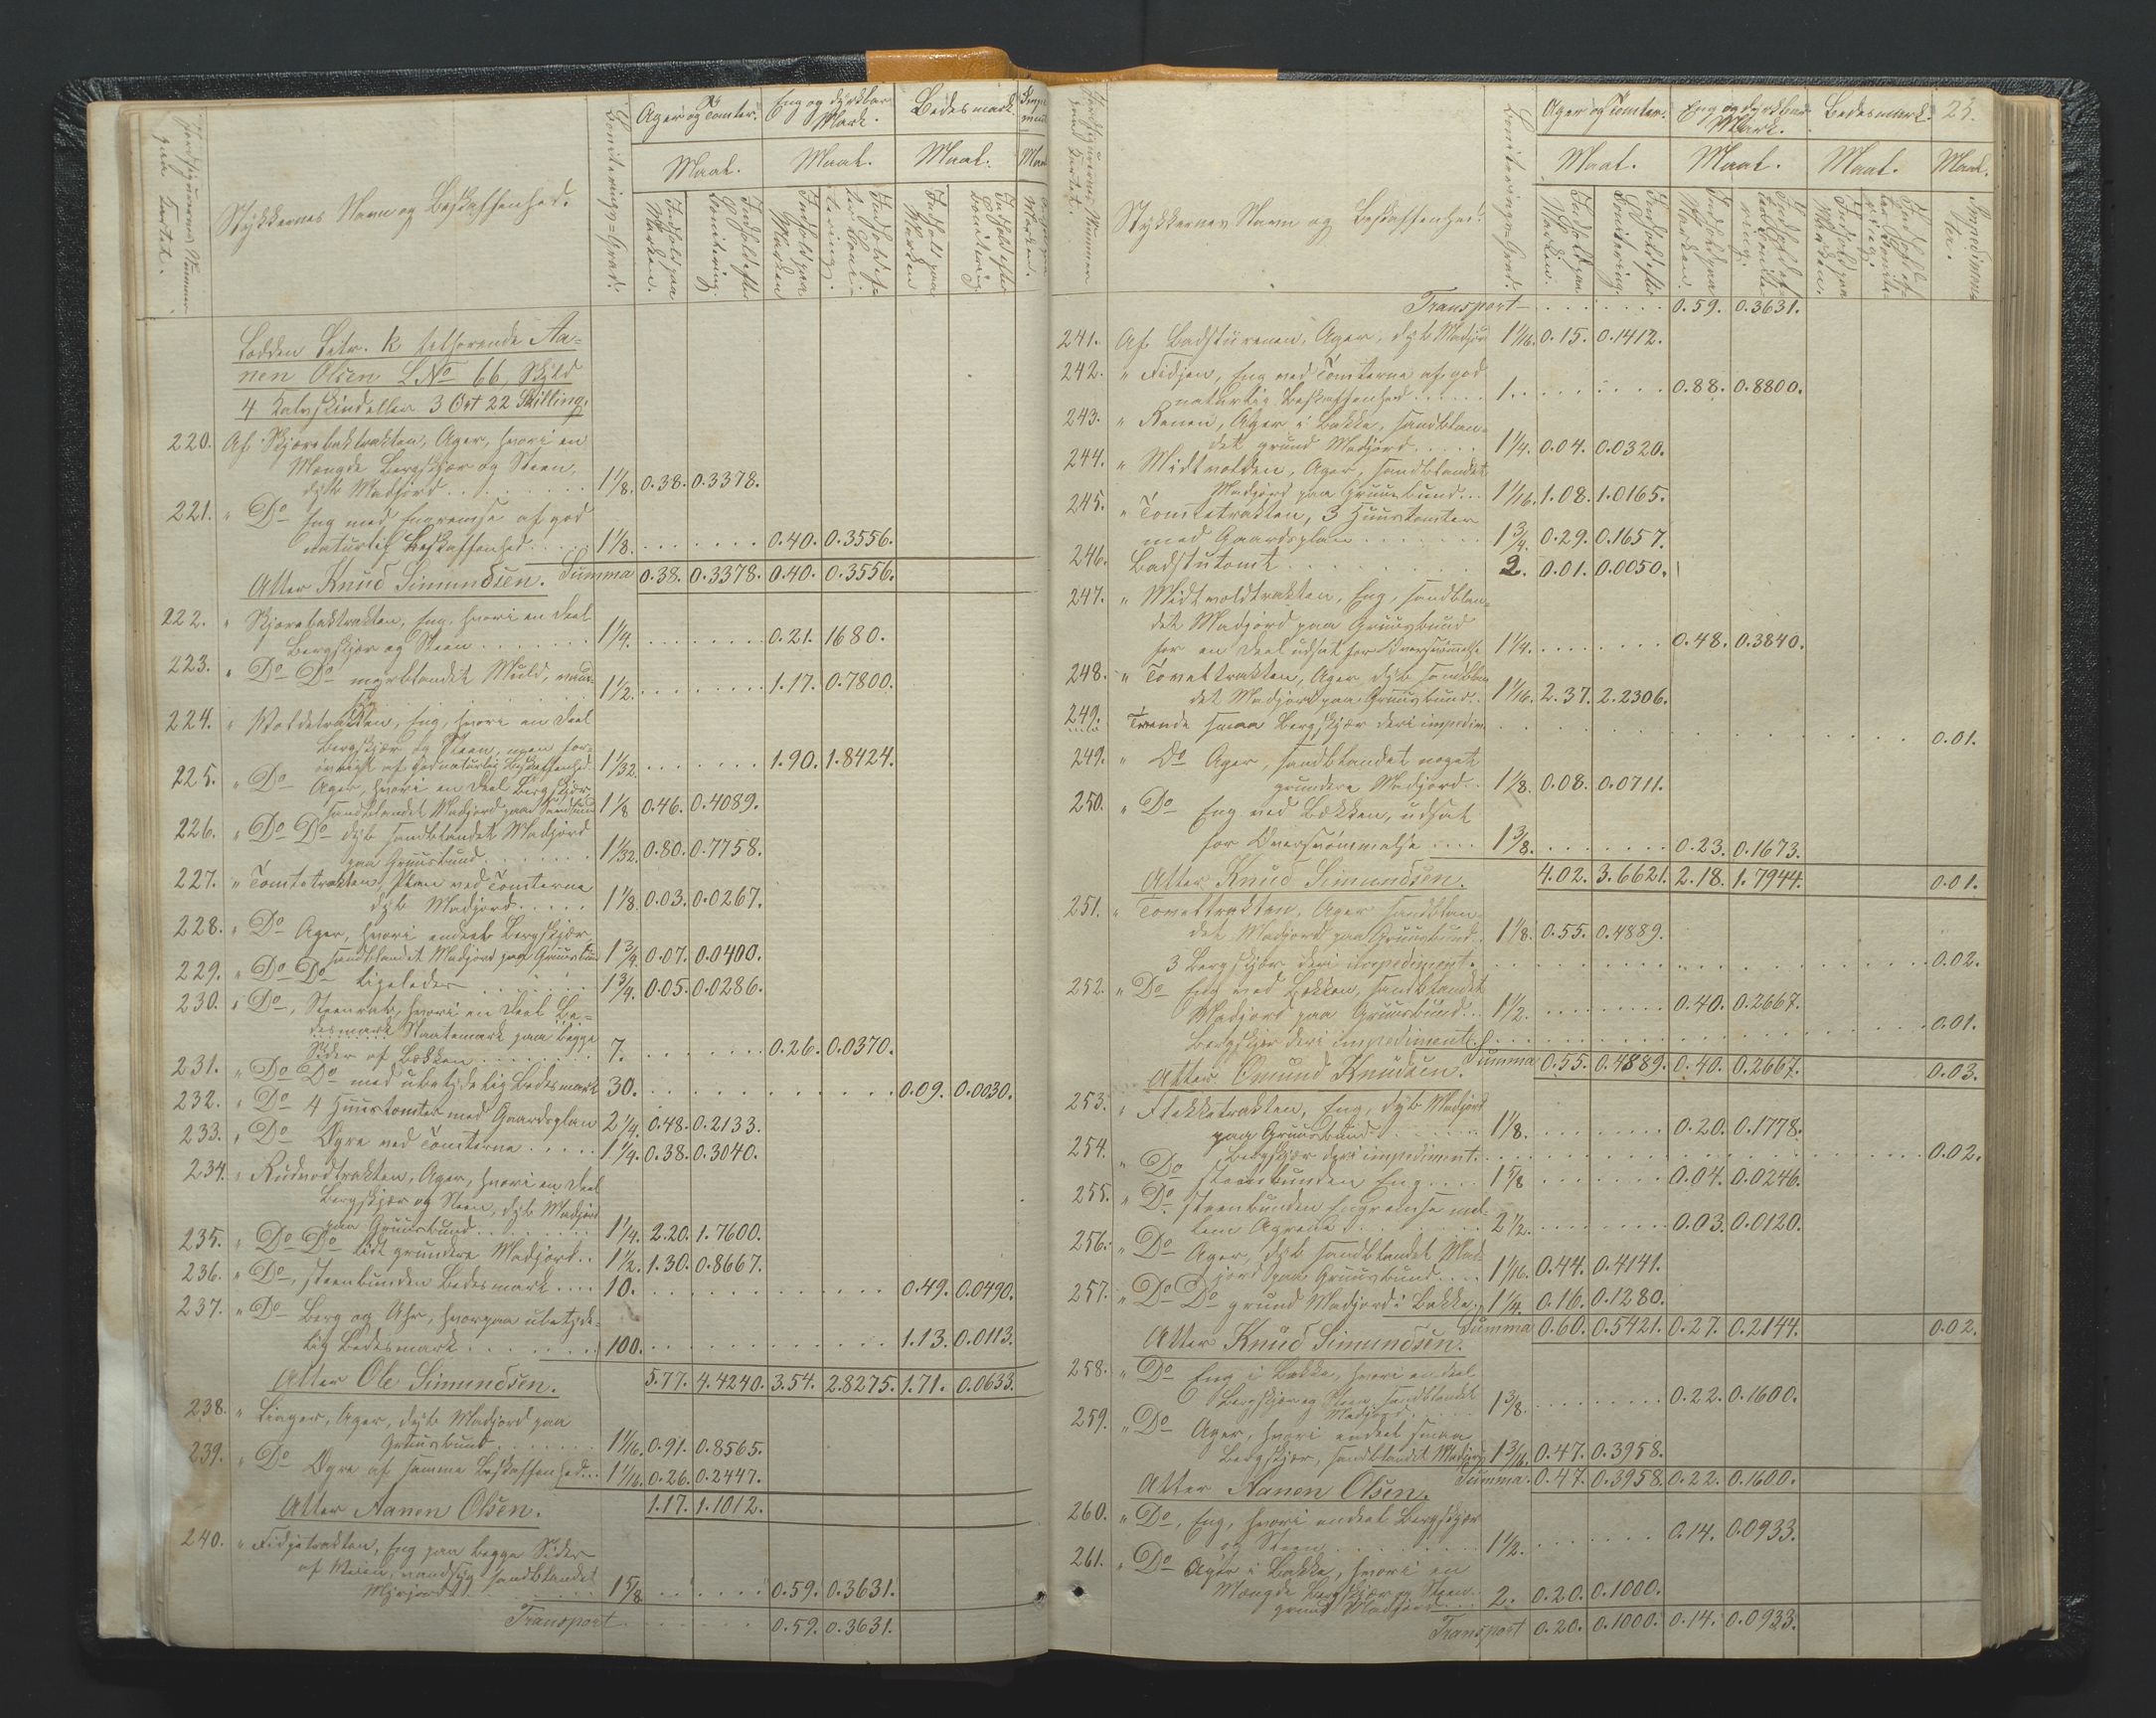 Jordfigurernes Nummer paa Kartet.
Stykkernes Navn og Beskaffenhed.
Boniterings-Grad.
Ager og Tomter. Eng og dyrkbar Mark. Bedesmark.
Maal. Maal. Maal. Maal
Indhold paa Marken. Indhold efter Bonitering. Indhold paa Marken Indhold efter Bonitering. Indhold paa Marken Indhold efter Bonitering
Lodden Litr. K tilhørende Aa-
nen Olsen LNo 66, Skyld
4 Kalvskind eller 3 Ort 22 Skilling.
220. Af Skjærebaktrakten, Ager, hvori en
Mængde Bergskjær og Steen,
dyb Madjord . . . 1 1/8. 0.38. 0.3378.
221. " Do Eng med Engremse af god
naturlig Beskaffenhed . . . 1 1/8. 0.40. 0.3556.
Summa 0.38. 0.3378. 0.40. 0.3556.
Atter Knud Simundsen.
222. " Skjærebaktrakten, Eng, hvori en Deel
Bergskjær og Steen . . . 1 1/4. 0.21. 1680.
223. " Do Do myrblandet Muld,
1 1/2. 1.17. 0.7800.
224. " Voldetrakten, Eng, hvori en Deel
Bergskjær og Steen, men for-
øvrigt af god naturlig Beskaffenhed 1 1/32. 1.90. 1.8424.
225. " Do Ager, hvori en Deel Bergskjær,
sandblandet Madjord paa Sandbund 1 1/8 0.46. 0.4089.
226. " Do Do dyb sandblandet Madjord
paa Gruusbund . . . 1 1/32. 0.80. 0.7758.
227. " Tomtetrakten, Plan ved Tomterne
dyb Madjord . . . 1 1/8. 0.03. 0.0267.
228. " Do Ager, hvori endeel Bergskjær
sandblandet Madjord paa Gruusbund 1 3/4 0.07. 0.0400.
229. " Do Do ligeledes . . . 1 3/4. 0.05. 0.0286.
230. " Do, Steenrab, hvori en Deel Be-
desmark Slaatemark paa begge
Sider af Bækken . . . 7. 0.26. 0.0370.
231. " Do Do med ubetydelig Bedesmark 30. 0.09. 0.0030.
232. " Do 4 Huustomter med Gaardsplan 2 1/4. 0.48. 0.2133.
233. " Do Agre ved Tomterne . . . 1 1/4. 0.38. 0.3040.
234. " Rudnodtrakten, Ager, hvori en Deel
Bergskjær og Steen, dyb Madjord
paa Gruusbund . . . 1 1/4. 2.20. 1.7600.
235. " Do Do lidt grundere Madjord . . 1 1/2. 1.30. 0.8667.
236. " Do, steenbunden Bedesmark . . . 10. 0.49. 0.0490.
237. " Do Berg og Uhr, hvorpaa ubetyde-
lig Bedesmark . . . 100. 1.13. 0.0113.
5.77. 4.4240. 3.54. 2.8275. 1.71. 0.0633.
Atter Ole Simundsen.
238. " Liager, Ager, dyb Madjord paa
Gruusbund . . . 1 1/16. 0.91. 0.8565.
239. " Do Agre af samme Beskaffenhed . . 1 1/16. 0.26. 0.2447.
1.17. 1.1012.
Atter Aanon Olsen.
240. " Fidjetrakten, Eng paa begge Sider
af Veien, vandsyg sandblandet
Myrjord . . . 1 5/8 0.59. 0.3631.
Transport . . . 0.59. 0.3631.
Jordfigurernes Nummer paa Kartet.
Stykkernes Navn og Beskaffenhed.
Boniterings-Grad.
Ager og Tomter. Eng og dyrkbar Mark. Bedesmark. 25.
Maal. Maal. Maal. Maal.
Indhold paa Marken. Indhold efter Bonitering. Indhold paa Marken. Indhold efter Bonitering. Indhold paa Marken. Indhold efter Bonitering.
Transport . . . 0.59. 0.3631.
241. Af Badsturenen, Ager, dyb Madjord 1 1/16. 0.15. 0.1412.
242. " Fidjen, Eng ved Tomterne af god
naturlig Beskaffenhed . . . 1. 0.88. 0.8800.
243. " Renen, Ager i Bakke, sandblan-
det grund Madjord . . . 1 1/4. 0.04. 0.0320.
244. " Midtvolden, Ager, sandblandet
Madjord paa Gruusbund . . . 1 1/16. 1.08. 1.0165.
245. " Tomtetrakten, 3 Huustomter
med Gaardsplan . . . 1 3/4. 0.29. 0.1657.
246. Badstutomt . . . 2. 0.01. 0.0050.
247. " Midtvoldtrakten, Eng, sandblan-
det Madjord paa Gruusbund
for en Deel udsat for Oversvømmelse 1 1/4. 0.48. 0.3840.
248. " Tovettrakten, Ager, dyb sandblan-
det Madjord paa Gruusbund . . 1 1/16. 2.37. 2.2306.
249. Tvende smaa Bergskjær deri impedim. . . . 0.01.
249. " Do Ager, sandblandet noget
grundere Madjord . . 1 1/8. 0.08. 0.0711.
250. " Do Eng ved Bækken, udsat
for Oversvømmelse . . . 1 3/8. 0.23. 0.1673.
4.02. 3.6621. 2.18. 1.7944. 0.01.
Atter Knud Simundsen.
251. " Tovettrakten, Ager sandblan-
det Madjord paa Gruusbund . . 1 1/8. 0.55. 0.4889.
3 Bergskjær deri impediment. . . . 0.02.
252. " Do Eng ved Bækken, sandblandet
Madjord paa Gruusbund . . 1 1/2. 0.40. 0.2667.
Bergskjær deri impediment . . . 0.01.
Summa 0.55. 0.4889. 0.40. 0.2667. 0.03.
Atter Omund Knudsen.
253. " Flekketrakten, Eng, dyb Madjord
paa Gruusbund . . . 1 1/8. 0.20. 0.1778.
Bergskjær deri impediment . . . 0.02.
254. " Do steenbunden Eng . . . 1 5/8 0.04. 0.0246.
255. " Do steenbunden Engremse mel-
lem Agrene . . . 2 1/2. 0.03. 0.0120.
256. " Do Ager, dyb sandblandet Mad-
jord paa Gruusbund . . . 1 1/16. 0.44. 0.4141.
257. " Do Do grund Madjord i Bakke . . 1 1/4. 0.16. 0.1280.
Summa 0.60. 0.5421. 0.27. 0.2144. 0.02.
Atter Knud Simundsen.
258. " Do Eng i Bakke, hvori endeel
Bergskjær og Steen, sandblandet
Madjord . . . 1 3/8. 0.22. 0.1600.
259. " Do Ager, hvori endeel smaa
Bergskjær, sandblandet Madjord 1 3/16. 0.47. 0.3958.
Summa. 0.47. 0.3958. 0.22. 0.1600.
Atter Aanon Olsen.
260. " Do, Eng, hvori endeel Bergskjær
og Steen . . . 1 1/2. 0.14. 0.0933.
261. " Do Agre i Bakke, hvori en
Mængde Bergskjær og Steen,
grund Madjord . . . 2. 0.20. 0.1000.
Transport 0.20. 0.1000. 0.14. 0.0933.